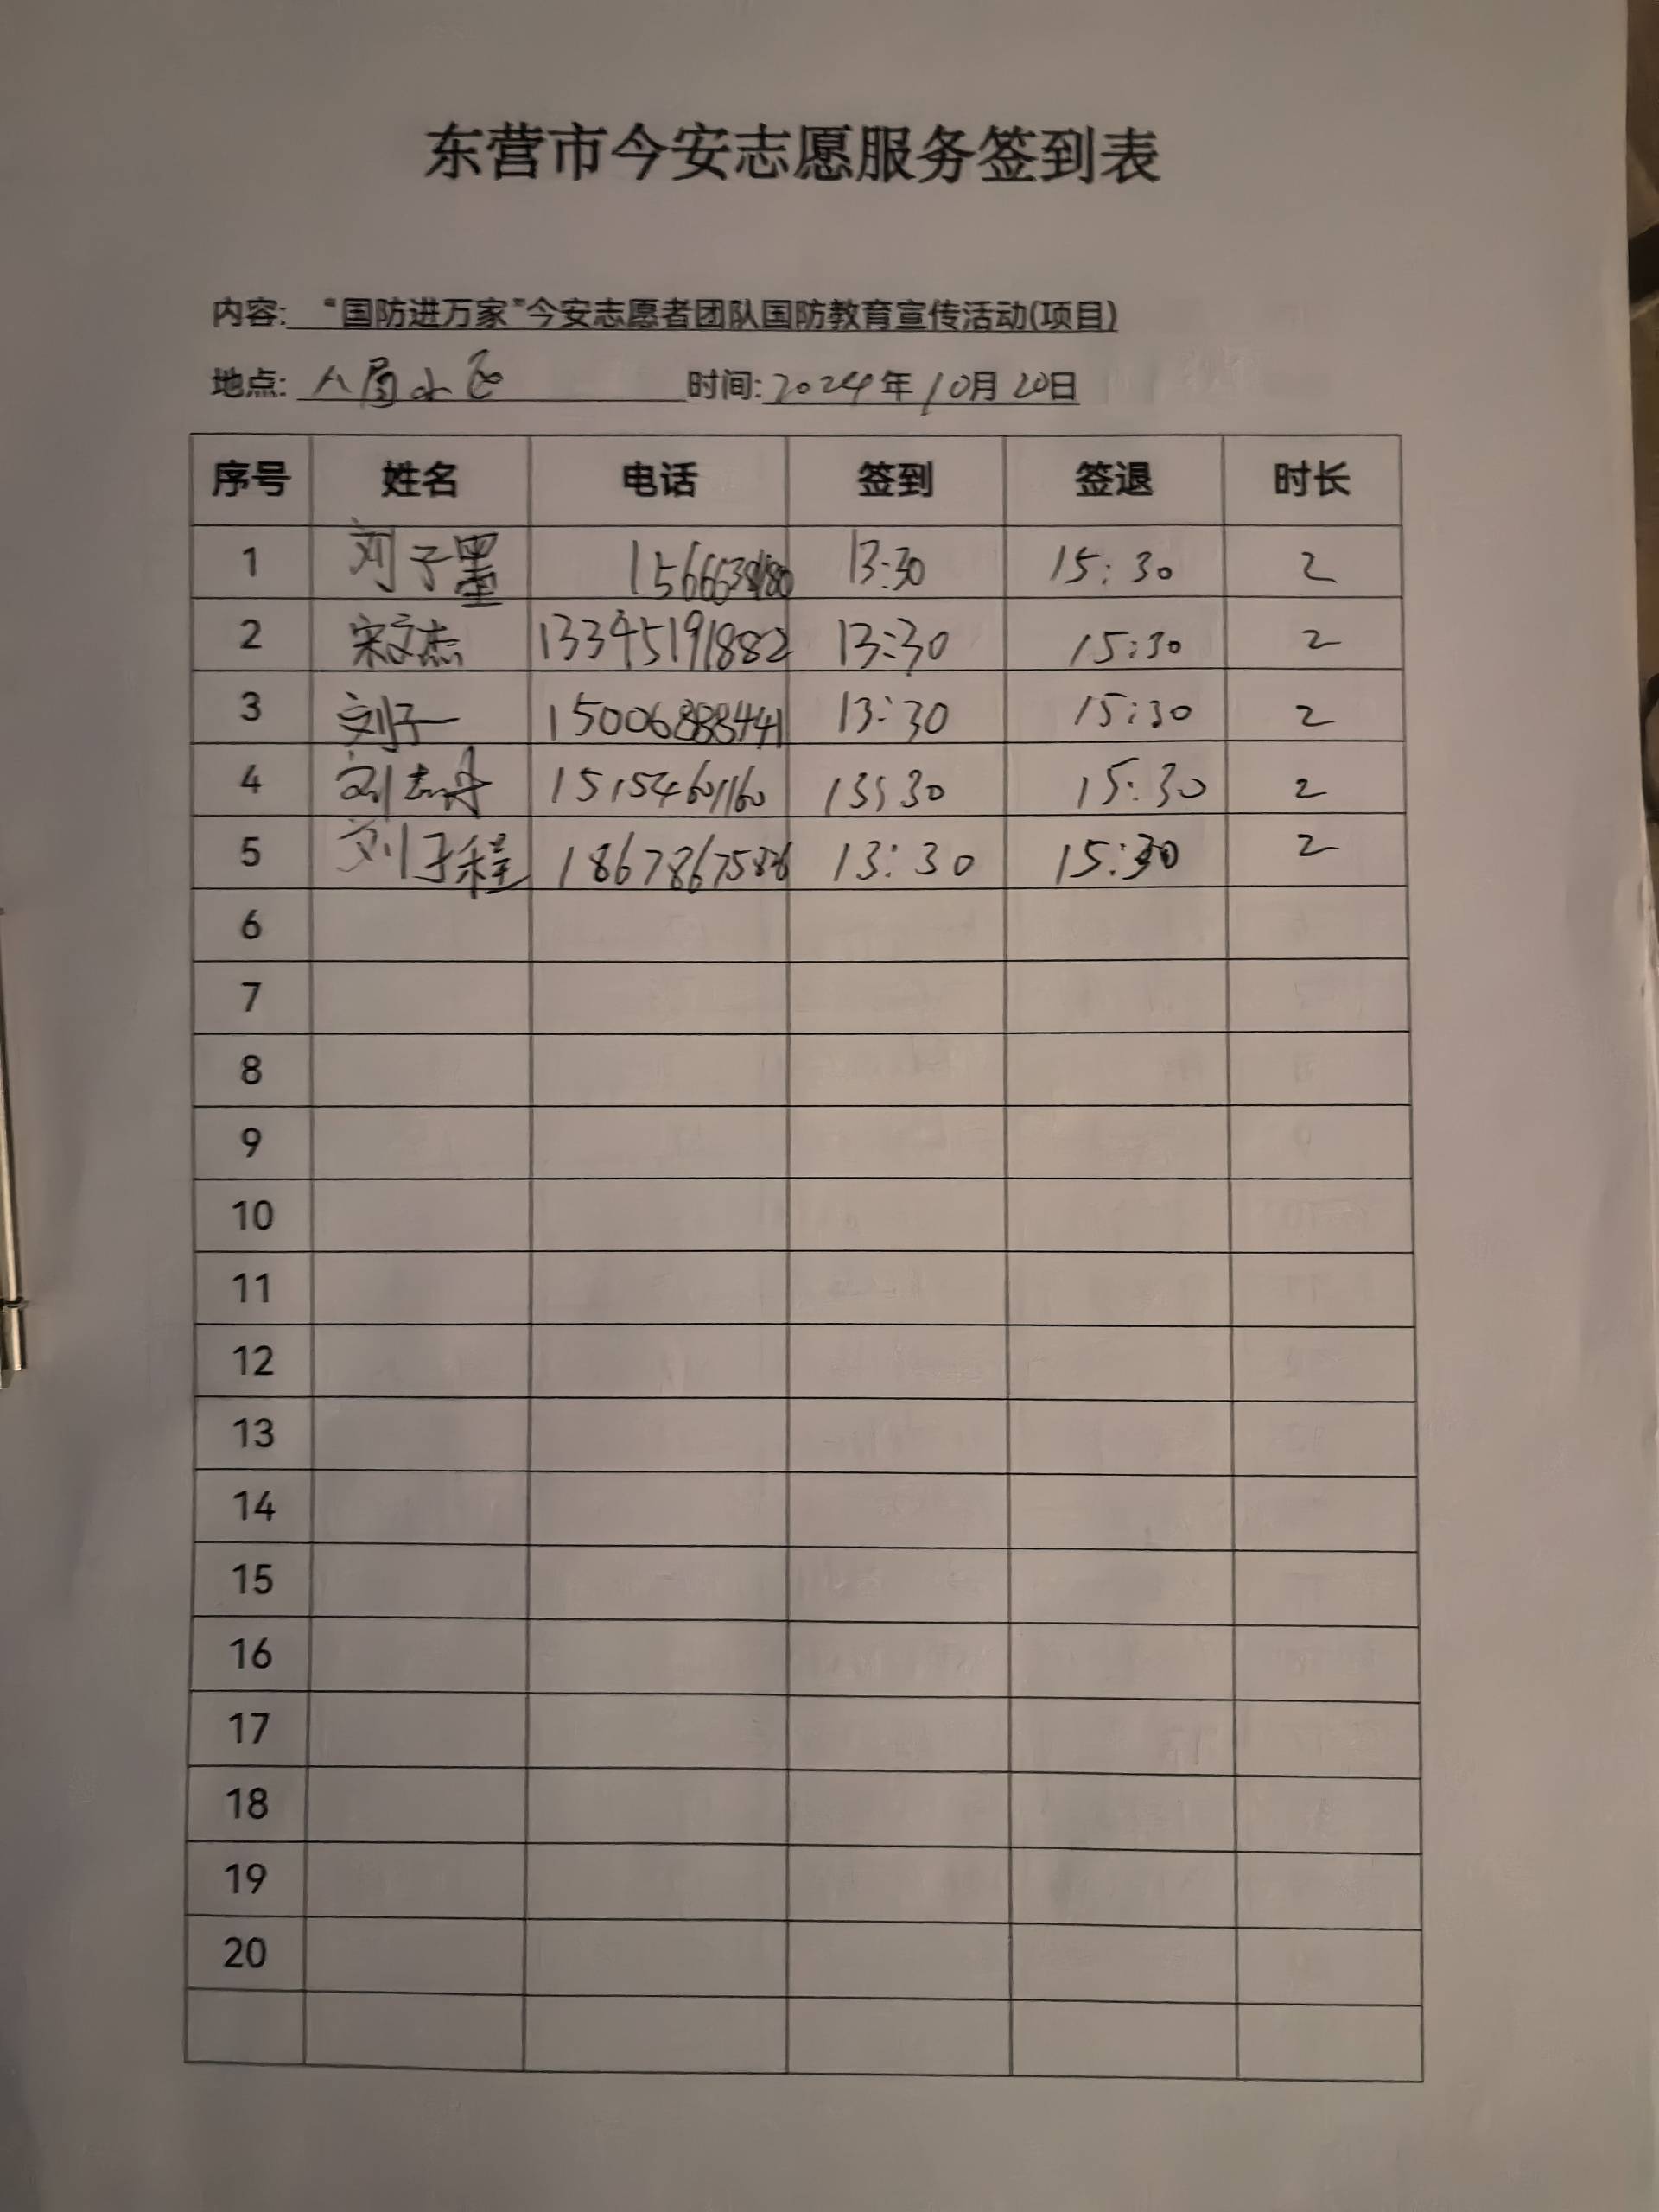 东营市今安志愿服务签到表
内容: “国防进万家”今安志愿者团队国防教育宣传活动(项目)
地点: 八届小区 时间: 2024年10月20日
序号 姓名 电话 签到 签退 时长
1 刘子墨 13:30 15:30 2
2 宋文杰 13345191882 13:30 15:30 2
3 刘子一 15006888441 13:30 15:30 2
4 刘志丹 15154601160 13:30 15:30 2
5 刘子程 13:30 15:30 2
6
7
8
9
10
11
12
13
14
15
16
17
18
19
20